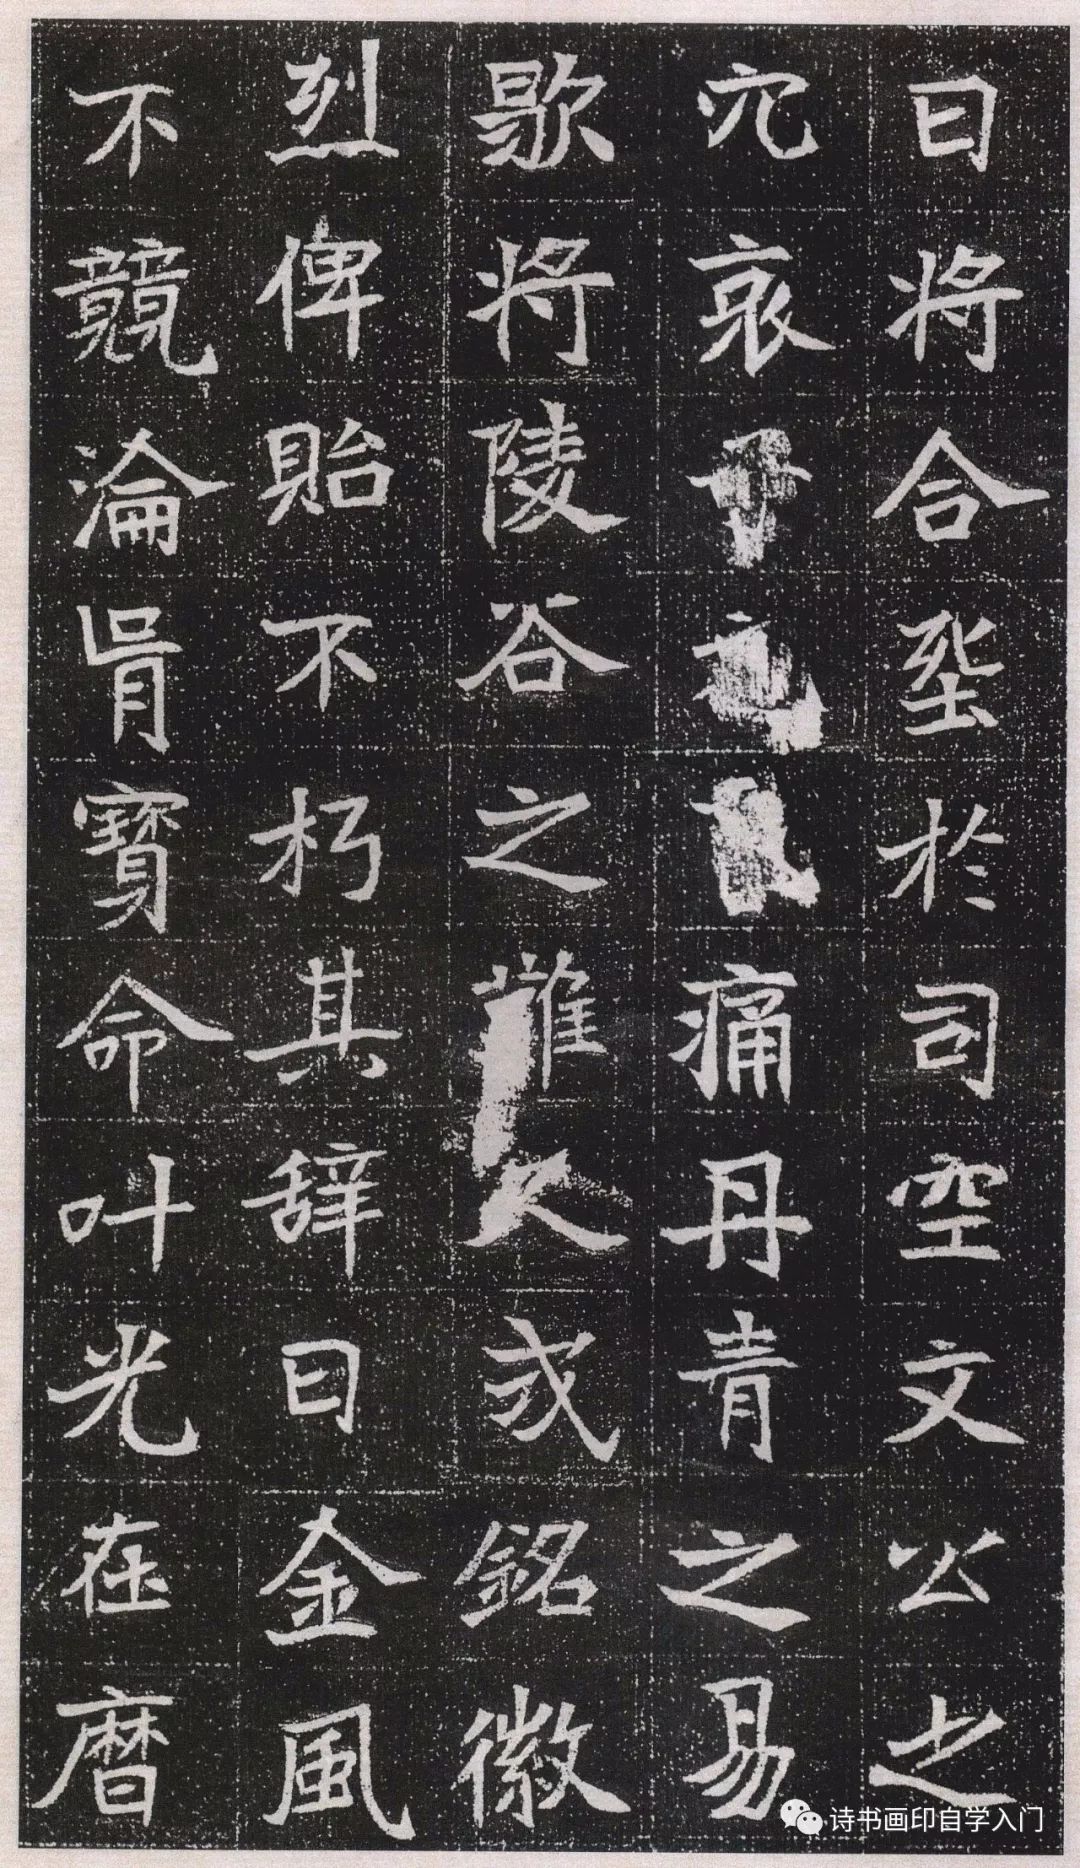 日将合葬於司空文公之
穴哀痛丹青之易
歇将陵谷之難久式銘徽
烈俾貽不朽其辞曰金風
不競淪胥寳命叶光在暦
诗书画印自学入门